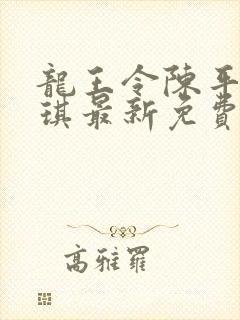 龍王令陳平
琪最新免費
高雅羅